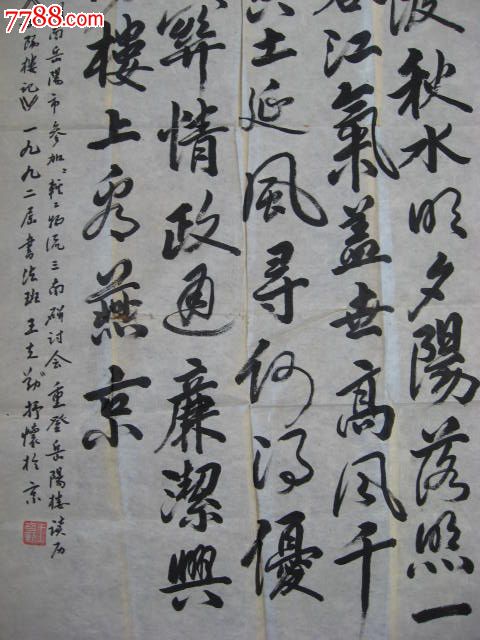 7788.com
波秋水明夕陽落照一
江氣蓋世高風千
士延風尋何得憂
算情政通廉潔興
樓上看燕京
南岳陽市參加 物流三南研討會重登岳陽樓讀后
陽樓記》一九九二屆書法班王克勤抒懷於京